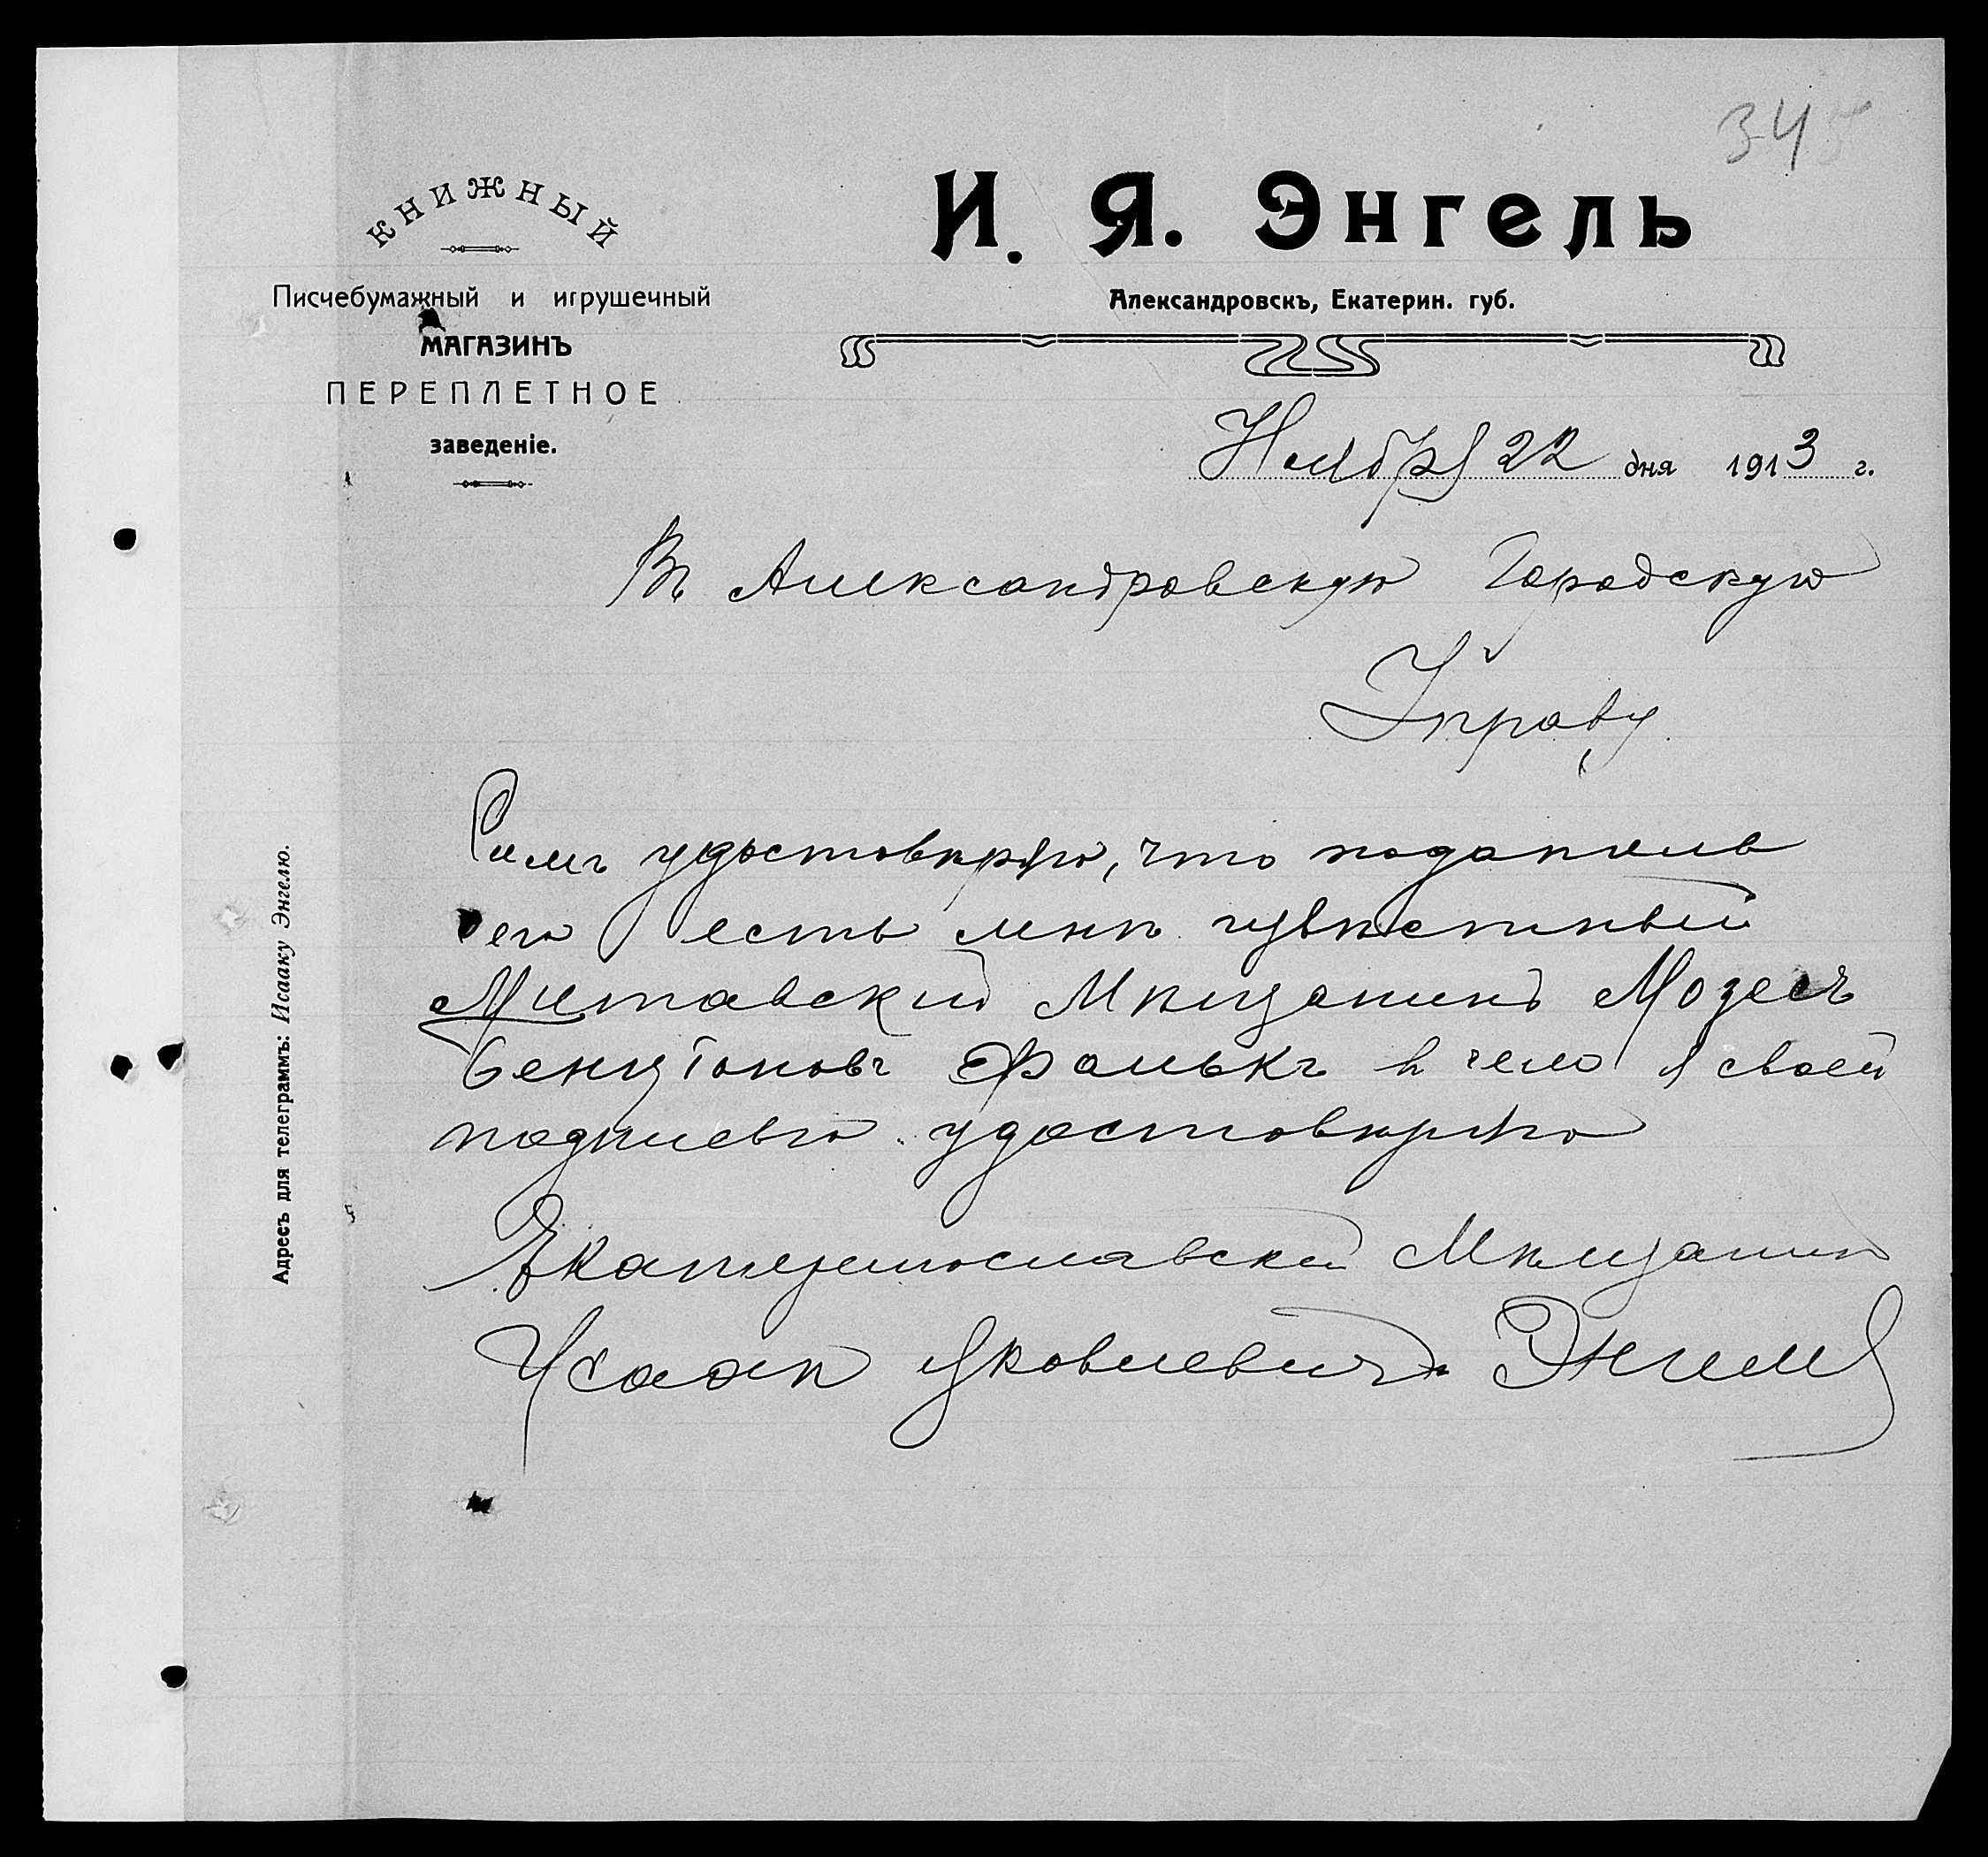 345
КНИЖНЫЙ
Писчебумажный и игрушечный
МАГАЗИНЪ
ПЕРЕПЛЕТНОЕ
заведеніе.
И. Я. Энгель
Александровскъ, Екатерин. губ.
Ноября 22 дня 1913 г.
Въ Александровскую Городскую
Управу
Симъ удостовѣряю, что податель
сего есть мнѣ извѣстный
Митавский Мѣщанинъ Мозесъ
Бенціоновъ Фалькъ в чемъ я своей
подписью удостовѣряю
Екатеринославский Мѣщанин
Исаак Яковлевичъ Энгель
Адресъ для телеграммъ: Исааку Энгелю.